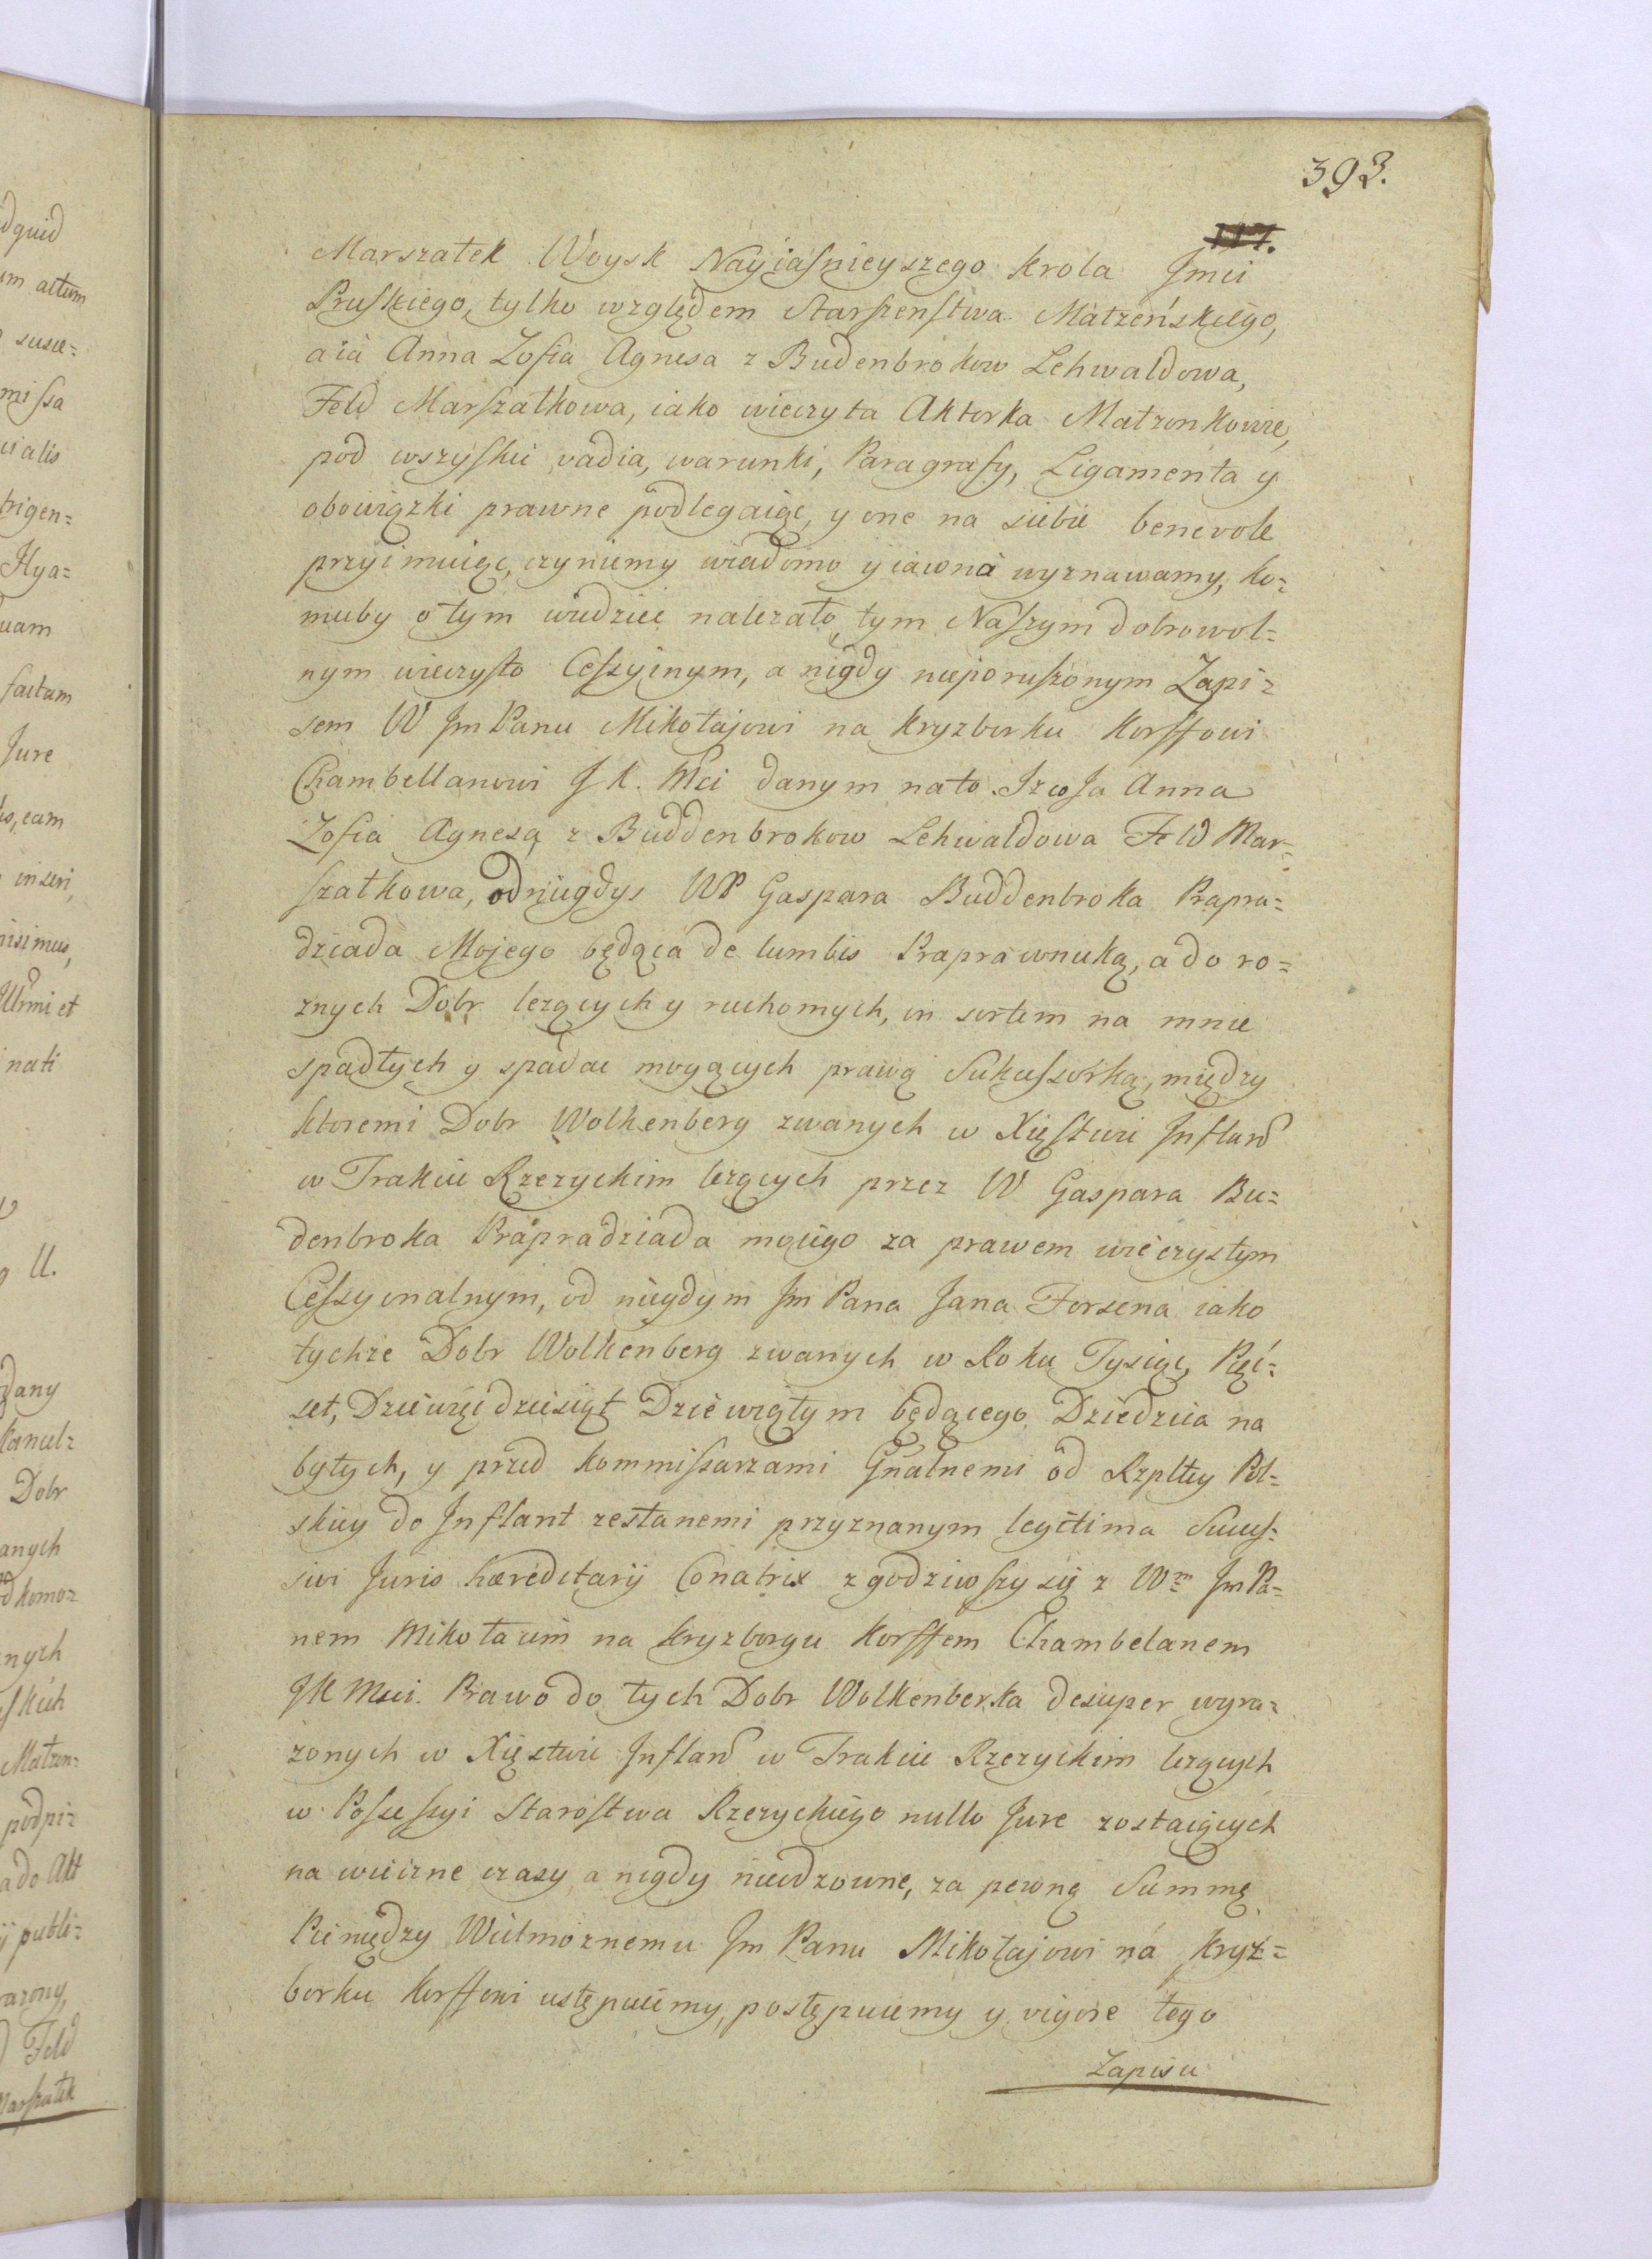 393.
117.
Marszałek Woysk Nayiaśnieyszego Krola Jmci
Pruskiego, tylko względem Starszenstwa Małżeńskiego,
a ia Anna Zofia Agnesa z Budenbrokow Lehwaldowa,
Feld Marszałkowa, iako wieczysta Aktorka Małżonkowie,
pod wszyskie vadia, warunki, Paragrafy, Ligamenta y
obowiązki prawne podlegaiąc, y one na siebie benevole
przyimuiąc, czyniemy wiadomo y iawna wyznawamy, ko=
muby o tym wiedziec nalezało, tym Naszym dobrowol=
nym wieczysto Cessyinym, a nigdy nieporuszonym Zapi=
sem W Jm Panu Mikołajowi na Kryzborku Korffowi
Chambellanowi J K. Mci danym na to. Iz co Ja Anna
Zofia Agnesa z Buddenbrokow Lehwaldowa Feld Mar=
szałkowa, od niegdys WP Gaspara Buddenbroka Prapra=
dziada Mojego będąca de lumbis Praprawnuką, a do ro=
znych Dobr lezących y ruchomych, in sortem na mnie
spadłych y spadac mogących prawą Sukcessorką, między
ktoremi Dobr Wolkenberg zwanych w Xięstwie Infland
w Trakcie Rzezyckim lezących przez W Gaspara Bu=
denbroka Prapradziada moiego za prawem wieczystym
Cessyonalnym, od niegdym Jm Pana Jana Forsena iako
tychze Dobr Wolkenberg zwanych w Roku Tysiąc, Pięć=
set, Dziewięcdziesiąt Dziewiątym będącego Dziedzica na
bytych, y przed Kommissarzami Gñalnemi od Rzpltey Pol=
skiey do Inflant zesłanemi przyznanym legitima Succes=
sivi Juris hæreditarij Conatrix zgodziwszy się z Wm Jm Pa=
nem Mikołaiem na Kryzborgu Korffem Chambelanem
JK Mci. Prawo do tych Dobr Wolkenberka desuper wyra=
zonych w Xięstwie Infland w Trakcie Rzezyckim lezących
w Possessyi Starostwa Rzezyckiego nullo Jure zostaiących
na wieczne czasy a nigdy nieodzowne, za pewną Summę
Pieniędzy Wielmoznemu Jm Panu Mikołajowi na Kryz=
borku Korffowi ustępuiemy, postępuiemy y vigore tego
Zapisu
dquid
um actum
susce=
missa
cialis
trigen=
Hya=
quam
factam
Jure
is, eam
inseri,
nisimus,
Illrmi et
nati
U.
dany
Dobr
anych
nych
skich
Małzon=
podpi=
a do Akt
ij publi=
razony,
Feld
Marszałek